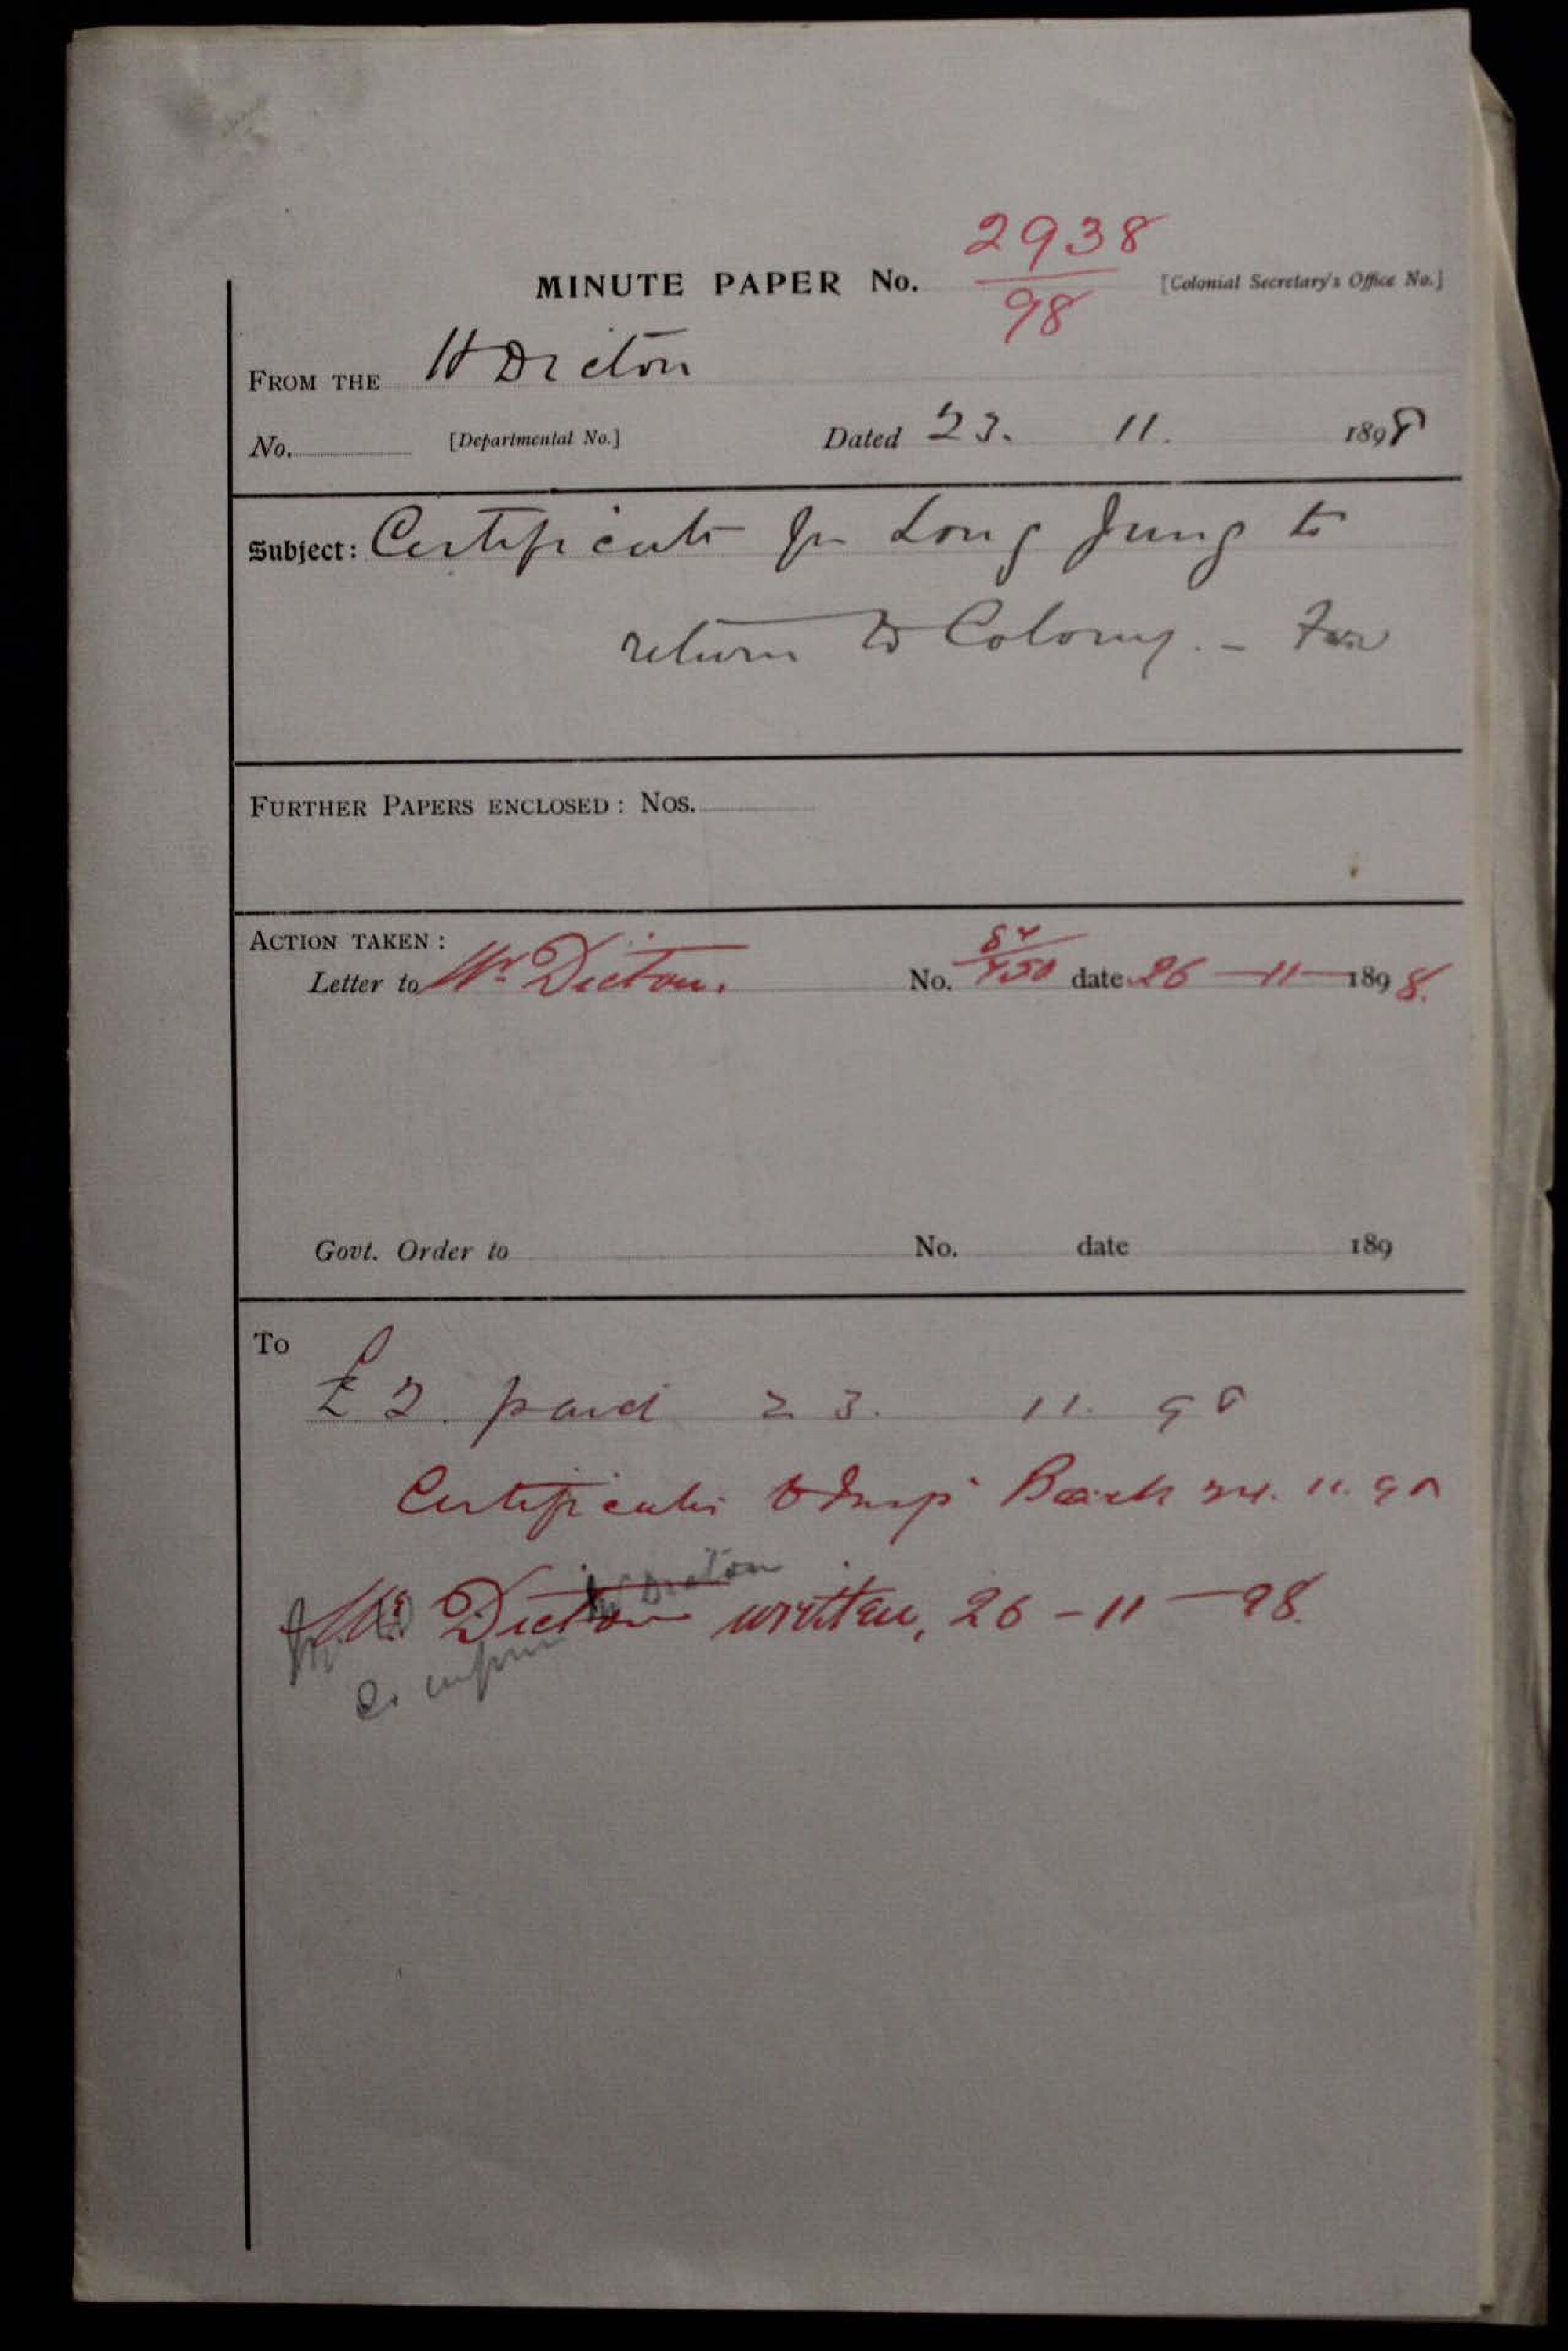 2938
MINUTE PAPER No. 98 [Colonial Secretary's Office No.]
FROM THE H Dicton
No. [Departmental No.] Dated 23. 11. 1898
Subject: Certificate for Long Jung to
return to Colony. –
FURTHER PAPERS ENCLOSED: Nos.
ACTION TAKEN:
Letter to Mr Dicton. No. date 26 – 11 – 1898.
Govt. Order to No. date 189
To
£2 paid 23. 11. 98
Certificate to Insp 24. 11. 98
Mr Dicton written, 26 – 11 – 98.